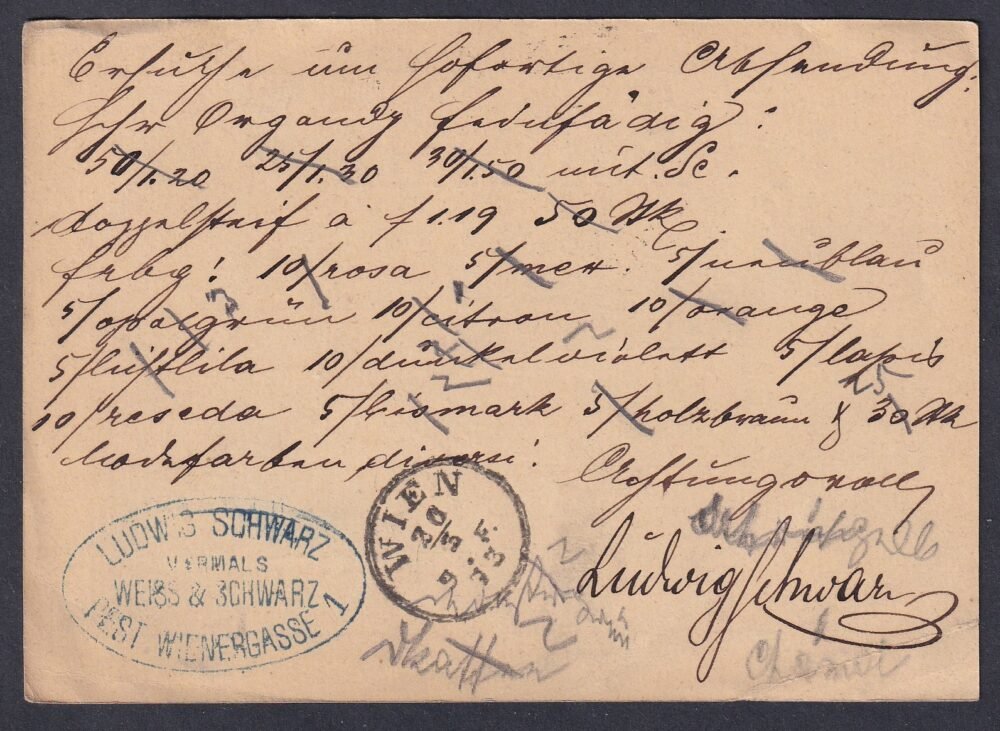 Ersuche um sofortige Absendung.
Sehr Organdy feinfädig:
50/1.20 25/1.30 30/1.50 mit Sc.
doppelsteif a f 1.19 50 Stk
frbg! 10/rosa 5/ 5/neublau
5/opalgrün 10/citron 10/orange
5/luftlila 10/dunkelviolett 5/lapis
25
10/reseda 5/bismark 5/holzbraun & 30 Stk
Modefarben diversi!
Achtungsvoll
Ludwig Schwarz
LUDWIG SCHWARZ
VORMALS
WEISS & SCHWARZ
PEST WIENERGASSE 1
WIEN